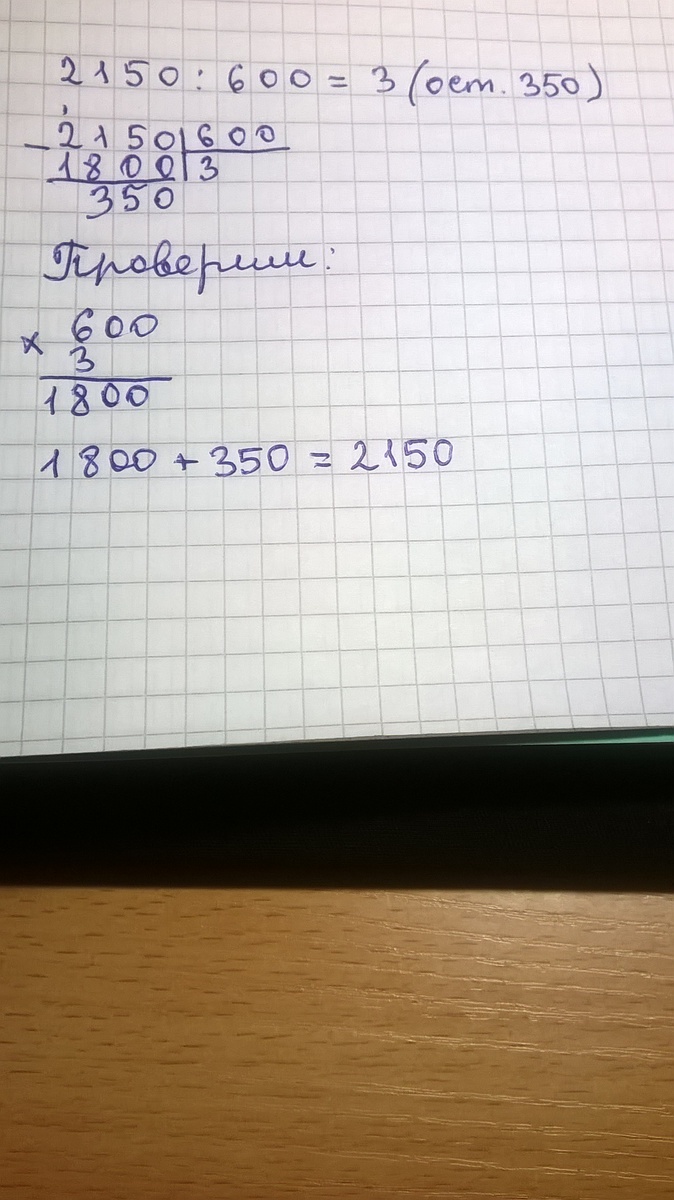 2150 : 600 = 3 (ост. 350)
- 2150 | 600
1800 | 3
350
Проверим:
× 600
3
1800
1800 + 350 = 2150